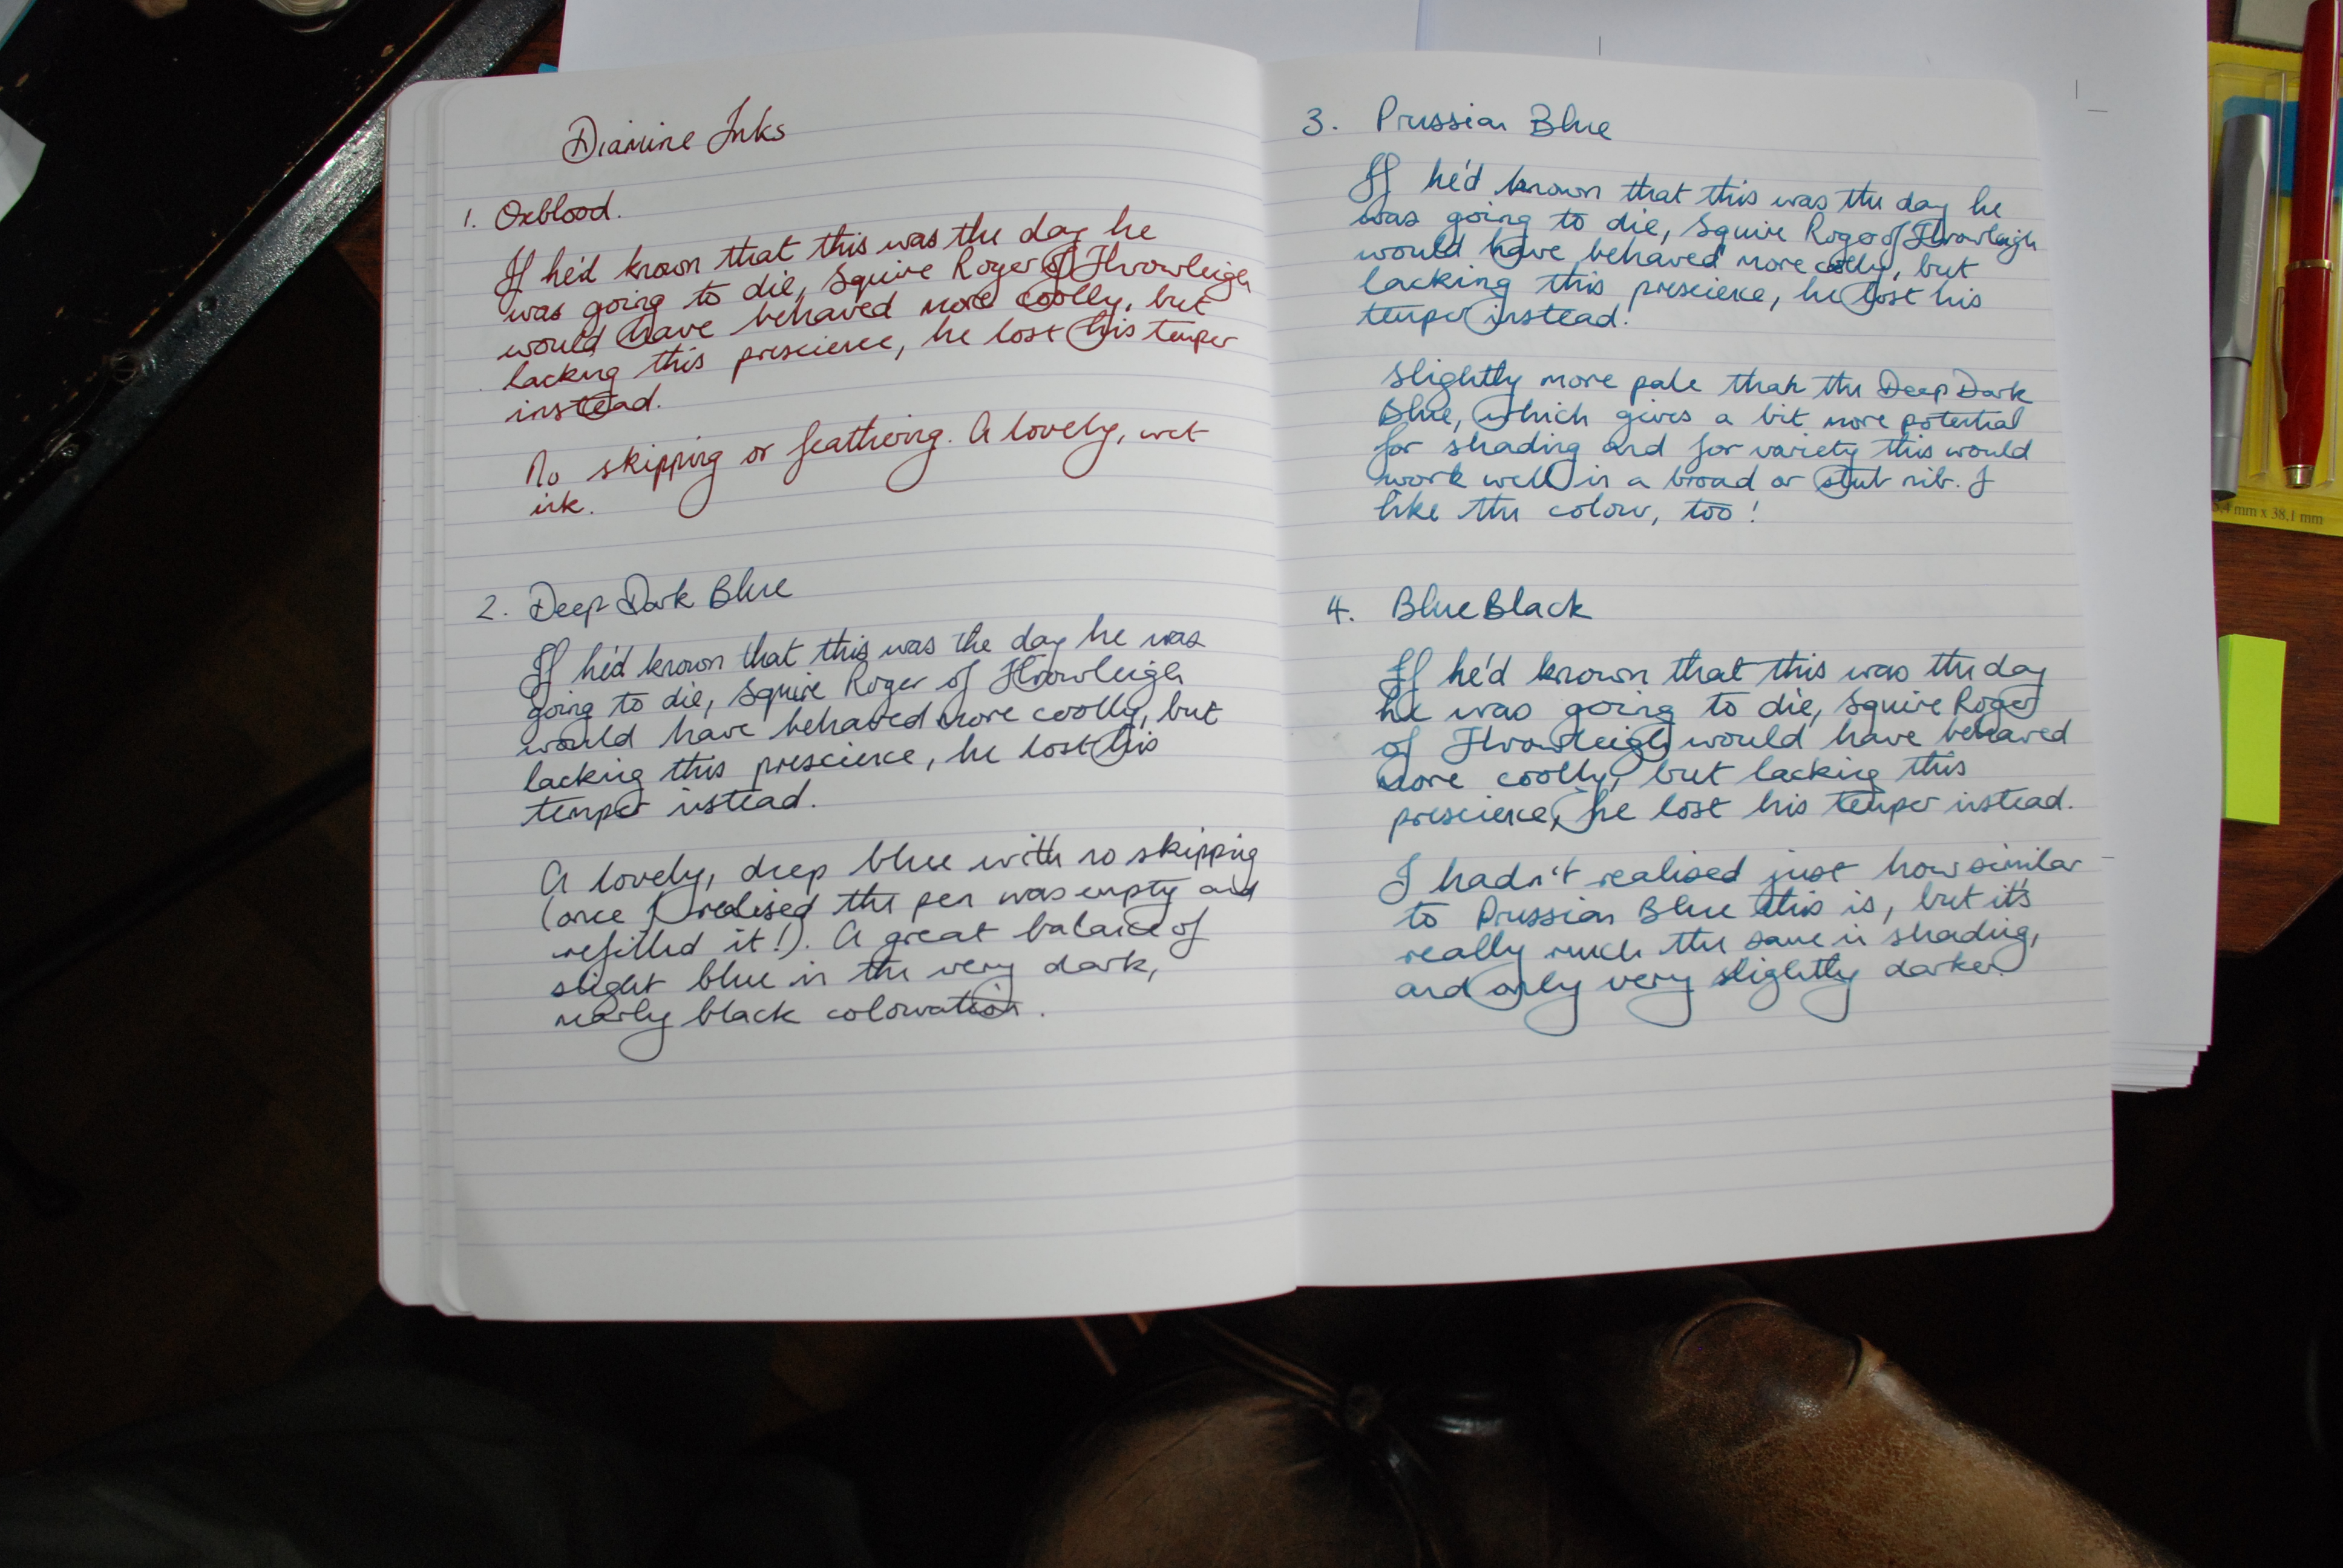 Diamine Inks
1. Oxblood.
If he'd known that this was the day he
was going to die, Squire Roger of Throwleigh
would have behaved more coolly, but
lacking this prescience, he lost his temper
instead.
No skipping or feathering. A lovely, wet
ink.
2. Deep Dark Blue
If he'd known that this was the day he was
going to die, Squire Roger of Throwleigh
would have behaved more coolly, but
lacking this prescience, he lost his
temper instead.
A lovely, deep blue with no skipping
(once I realised the pen was empty and
refilled it!). A great balance of
slight blue in the very dark,
nearly black colouration.
3. Prussian Blue
If he'd known that this was the day he
was going to die, Squire Roger of Throwleigh
would have behaved more coolly, but
lacking this prescience, he lost his
temper instead.
Slightly more pale than the Deep Dark
Blue, which gives a bit more potential
for shading and for variety this would
work well in a broad or stub nib. I
like the colour, too!
4. Blue Black
If he'd known that this was the day
he was going to die, Squire Roger
of Throwleigh would have behaved
more coolly, but lacking this
prescience, he lost his temper instead.
I hadn't realised just how similar
to Prussian Blue this is, but it's
really much the same in shading,
and only very slightly darker.
5,4 mm x 38,1 mm